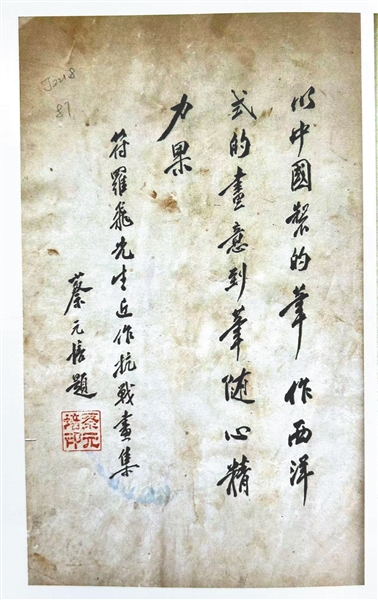 J2218
87
以中國製的筆作西洋
式的畫意到筆隨心精
力果
符羅飛先生近作抗戰畫集
蔡元培題
蔡元
培印